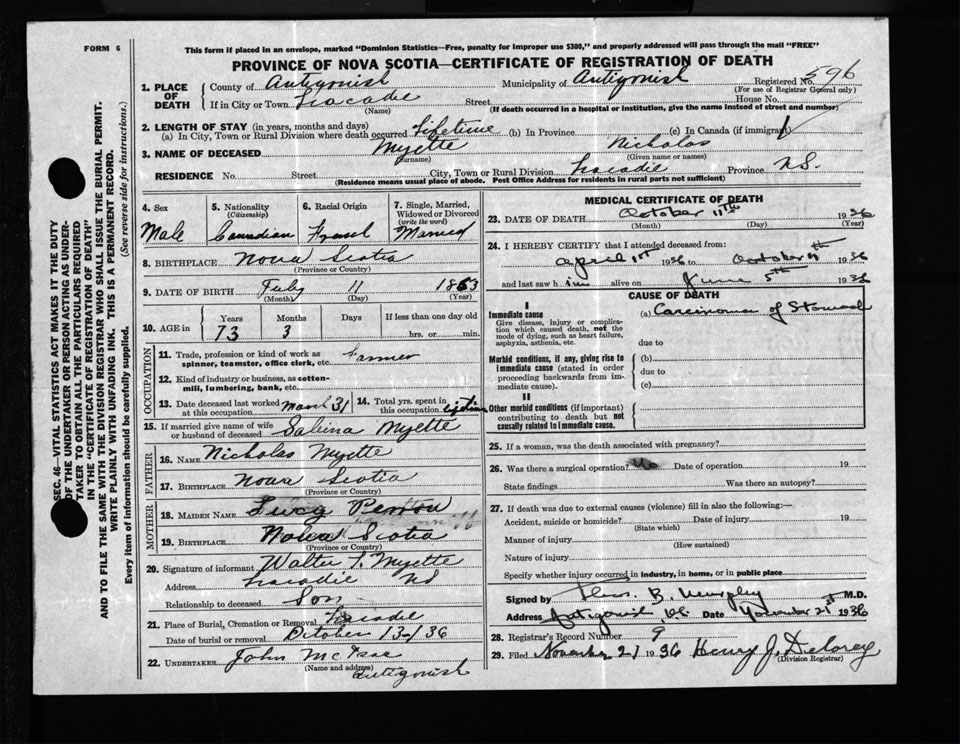 FORM 6
This form if placed in an envelope, marked "Dominion Statistics—Free, penalty for improper use $300," and properly addressed will pass through the mail "FREE"
PROVINCE OF NOVA SCOTIA—CERTIFICATE OF REGISTRATION OF DEATH
SEC. 46—VITAL STATISTICS ACT MAKES IT THE DUTY
OF THE UNDERTAKER OR PERSON ACTING AS UNDER-
TAKER TO OBTAIN ALL THE PARTICULARS REQUIRED
IN THE "CERTIFICATE OF REGISTRATION OF DEATH"
AND TO FILE THE SAME WITH THE DIVISION REGISTRAR WHO SHALL ISSUE THE BURIAL PERMIT.
WRITE PLAINLY WITH UNFADING INK. THIS IS A PERMANENT RECORD.
Every item of information should be carefully supplied. (See reverse side for instructions.)
1. PLACE OF DEATH County of Antigonish Municipality of Antigonish Registered No. 596
(For use of Registrar General only)
If in City or Town Tracadie Street House No.
(Name) (If death occurred in a hospital or institution, give the name instead of street and number)
2. LENGTH OF STAY (in years, months and days)
(a) In City, Town or Rural Division where death occurred Lifetime (b) In Province (c) In Canada (if immigrant)
3. NAME OF DECEASED Myette Nicholas
(Surname) (Given name or names)
RESIDENCE No. Street City, Town or Rural Division Tracadie Province N.S.
(Residence means usual place of abode. Post Office Address for residents in rural parts not sufficient)
4. Sex Male
5. Nationality (Citizenship) Canadian
6. Racial Origin French
7. Single, Married, Widowed or Divorced (write the word) Married
8. BIRTHPLACE Nova Scotia
(Province or Country)
9. DATE OF BIRTH July 11 1863
(Month) (Day) (Year)
10. AGE in Years 73 Months 3 Days If less than one day old hrs. or min.
OCCUPATION
11. Trade, profession or kind of work as spinner, teamster, office clerk, etc. Farmer
12. Kind of industry or business, as cotton-mill, lumbering, bank, etc.
13. Date deceased last worked at this occupation March 31
14. Total yrs. spent in this occupation
15. If married give name of wife or husband of deceased Sabina Myette
FATHER
16. NAME Nicholas Myette
17. BIRTHPLACE Nova Scotia
(Province or Country)
MOTHER
18. MAIDEN NAME Lucy
19. BIRTHPLACE Nova Scotia
(Province or Country)
20. Signature of informant Walter Myette
Address Tracadie NS
Relationship to deceased Son
21. Place of Burial, Cremation or Removal Tracadie
Date of burial or removal October 13-/36
22. UNDERTAKER John McIsaac
(Name and address) Antigonish
MEDICAL CERTIFICATE OF DEATH
23. DATE OF DEATH October 11th 1936
(Month) (Day) (Year)
24. I HEREBY CERTIFY that I attended deceased from:
April 1st 1936 to October 11th 1936
and last saw him alive on June 5th 1936
CAUSE OF DEATH
I
Immediate cause
Give disease, injury or complication which caused death, not the mode of dying, such as heart failure, asphyxia, asthenia, etc.
(a) Carcinoma of Stomach
due to
Morbid conditions, if any, giving rise to immediate cause (stated in order proceeding backwards from immediate cause).
(b)
due to
(c)
II
Other morbid conditions (if important) contributing to death but not causally related to immediate cause.
25. If a woman, was the death associated with pregnancy?
26. Was there a surgical operation? No Date of operation 19
State findings Was there an autopsy?
27. If death was due to external causes (violence) fill in also the following:—
Accident, suicide or homicide? Date of injury 19
(State which)
Manner of injury
(How sustained)
Nature of injury
Specify whether injury occurred in industry, in home, or in public place
Signed by B. Murphy M.D.
Address Antigonish, N.S. Date November 21st 1936
28. Registrar's Record Number 9
29. Filed November 21 1936 Henry J. Delorey
(Division Registrar)